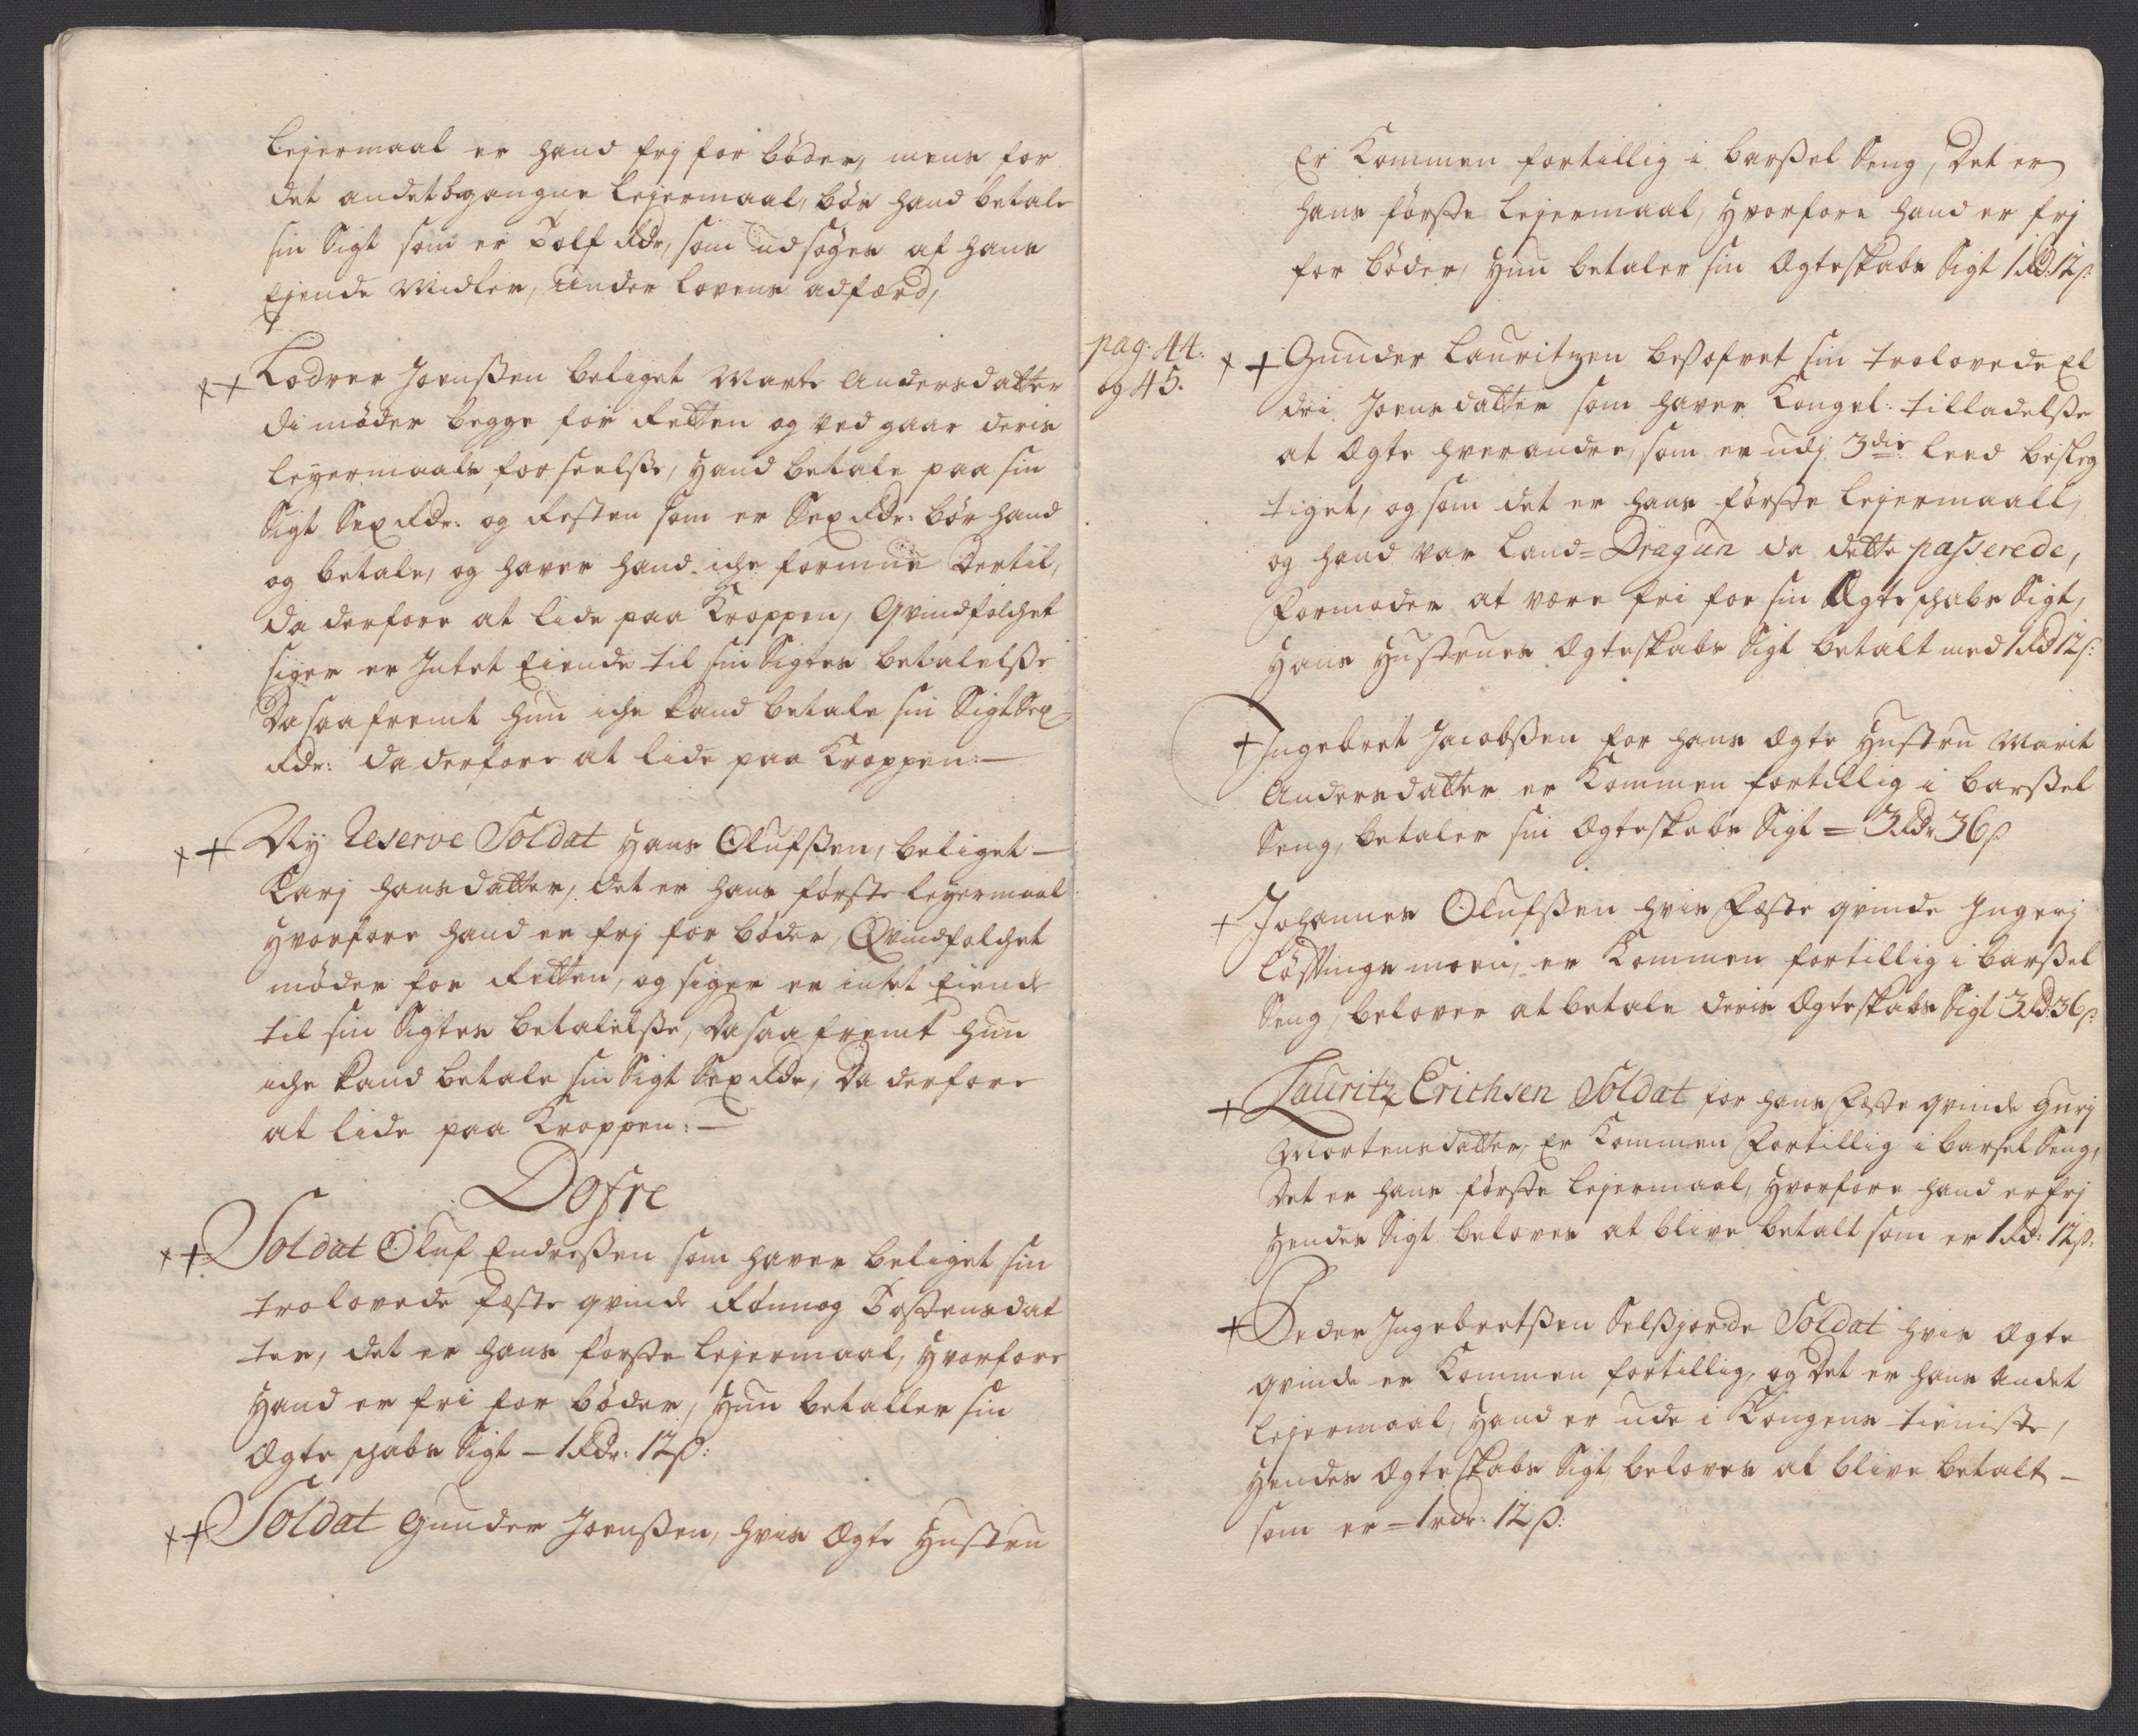 Lejermaal er hand frj for böder, mens for
det andet begangne Lejermaal, bör hand betale
sin Sigt som er Tolf Rdr, som udsöges af hans
Ejende Midler, under Lovens adfærd,
++ Lodver Joenßen beliget Marte Andersdatter
di möder begge for Retten og ved gaar deris
Leyermaals forseelsse, Hand betale paa sin
Sigt Sex Rdr: og Resten som er Sex Rdr: bör hand
og betale, og haver hand iche formue dertil,
da derfore at lide paa Kroppen, Qvindfolchet
siger er Intet Eiende til sin Sigtes betalelsse
Da saafremt hun iche kand betale sin Sigt Sex
Rdr: da derfore at lide paa Kroppen: —
++ Ny Reserve Soldat Hans Olufßen, beliget —
Karj Hansdatter, det er hans förste Leyermaal
Hvorfore hand er frj for böder, Qvindfolchet
möder for Retten, og siger er intet Eiende
til sin Sigtes betalelsse, Da saafremt hun
iche kand betale sin Sigt Sex Rdr, Da derfore
at lide paa Kroppen: —
Dofre
++ Soldat Oluf Endreßen som haver beliget sin
trolovede fæste qvinde Rönnog Tostensdat
ter, det er hans förste Lejermaal, Hvorfore
Hand er fri for böder, Hun betaller sin
Ægteschabs Sigt – 1 Rdr: 12 ß:
++ Soldat Gunder Joenßen, hvis Ægte Hustru
Er Kommen fortillig i barßel Seng, Det er
hans förste Lejermaal, Hvorfore hand er frj
for böder, Hun betaler sin Ægteskabs Sigt 1 Rd: 12 ß:
pag: 44:
og 45.
++ Gunder Lauritzen besofvet sin trolovede El
dri Joensdatter som haver Kongel: tilladelsse
at Ægte hverandre, som er udj 3die Leed besleg
tiget, og som det er hans förste Lejermaall,
og hand var Land=Dragun da dette passerede,
Formoder at være fri for sin Ægteschabs Sigt,
Hans Hustrues Ægteskabs Sigt betalt med 1 Rd 12 ß:
+ Ingebret Jacobßen for hans Ægte Hustru Marit
Andersdatter er Kommen fortillig i barßel
Seng, betaler sin Ægteskabs Sigt = 3 Rdr 36 ß
+ Johannes Olufßen hvis Fæste qvinde Ingerj
moen, er Kommen fortillig i barßel
Seng, belover at betale deris Ægteskabs Sigt 3 Rd: 36 ß:
+ Lauritz Erichsen Soldat for hans Fæste qvinde Gurj
Mortensdatter, Er Kommen Fortillig i barsel Seng,
Det er hans förste Lejermaal, Hvorfore hand er frj
Hendes Sigt beloves at blive betalt som er 1 Rd: 12 ß:
+ Peder Ingebretßen Selßjorde Soldat hvis Ægte
qvinde er Kommen fortillig, og det er hans Andet
Lejermaal, Hand er ude i Kongens tieniste,
Hendes Ægteskabs Sigt, beloves at blive betalt —
som er = 1 rdr: 12 ß: